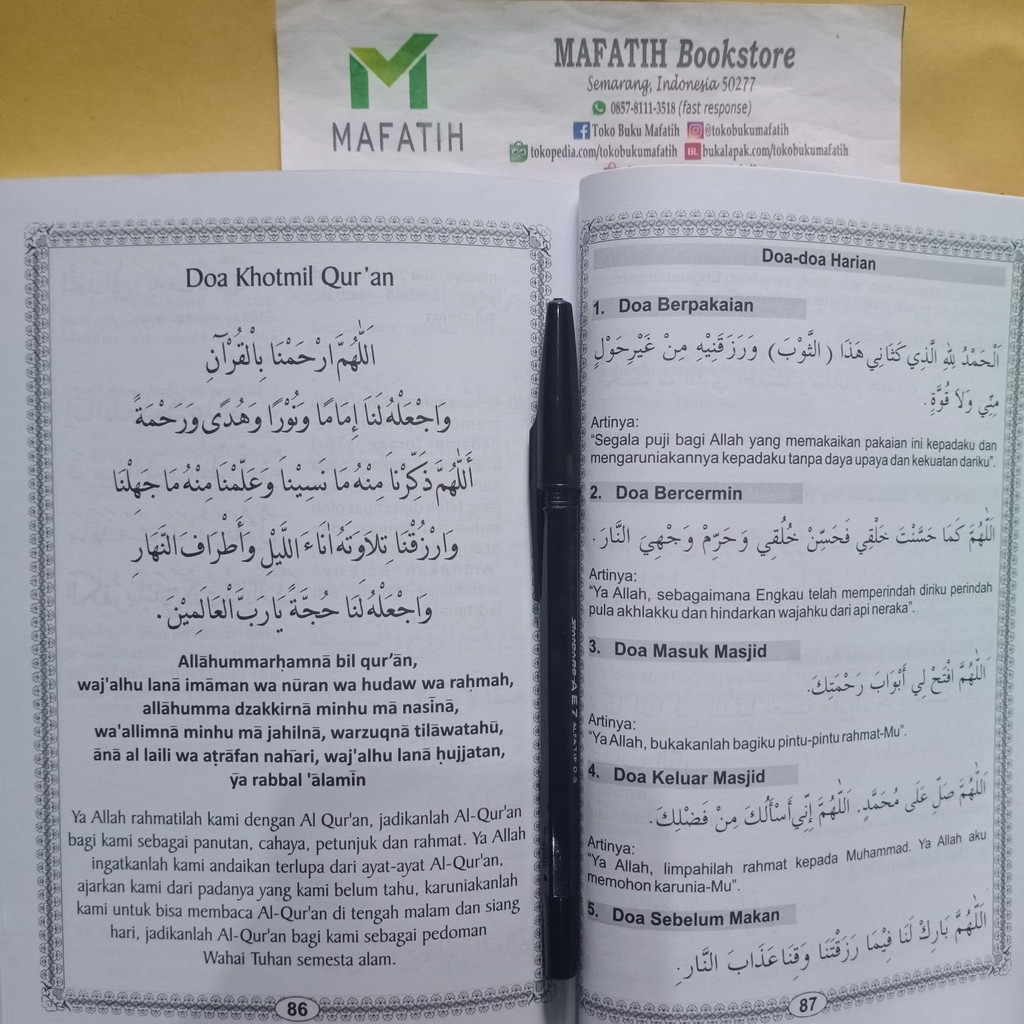 MAFATIH
MAFATIH Bookstore
Semarang, Indonesia 50277
0857-8111-3518 (fast response)
Toko Buku Mafatih @tokobukumafatih
tokopedia.com/tokobukumafatih BL bukalapak.com/tokobukumafatih
Doa Khotmil Qur'an
اَللّٰهُمَّ ارْحَمْنَا بِالْقُرْآنِ
وَاجْعَلْهُ لَنَا إِمَامًا وَنُوْرًا وَهُدًى وَرَحْمَةً
أَللّٰهُمَّ ذَكِّرْنَا مِنْهُ مَا نَسِيْنَا وَعَلِّمْنَا مِنْهُ مَا جَهِلْنَا
وَارْزُقْنَا تِلَاوَتَهُ اٰنَاءَ اللَّيْلِ وَأَطْرَافَ النَّهَارِ
وَاجْعَلْهُ لَنَا حُجَّةً يَا رَبَّ الْعَالَمِيْنَ.
Allāhummarḥamnā bil qur'ān,
waj'alhu lanā imāman wa nūran wa hudaw wa raḥmah,
allāhumma dzakkirnā minhu mā nasīnā,
wa'allimnā minhu mā jahilnā, warzuqnā tilāwatahū,
ānā al laili wa aṭrāfan nahāri, waj'alhu lanā ḥujjatan,
ȳa rabbal 'ālamīn
Ya Allah rahmatilah kami dengan Al Qur'an, jadikanlah Al-Qur'an
bagi kami sebagai panutan, cahaya, petunjuk dan rahmat. Ya Allah
ingatkanlah kami andaikan terlupa dari ayat-ayat Al-Qur'an,
ajarkan kami dari padanya yang kami belum tahu, karuniakanlah
kami untuk bisa membaca Al-Qur'an di tengah malam dan siang
hari, jadikanlah Al-Qur'an bagi kami sebagai pedoman
Wahai Tuhan semesta alam.
86
Doa-doa Harian
1. Doa Berpakaian
اَلْحَمْدُ لِلّٰهِ الَّذِي كَثَانِي هَذَا (الثَّوْبَ) وَرَزَقَنِيْهِ مِنْ غَيْرِ حَوْلٍ
مِنِّي وَلَا قُوَّةٍ.
Artinya:
"Segala puji bagi Allah yang memakaikan pakaian ini kepadaku dan
mengaruniakannya kepadaku tanpa daya upaya dan kekuatan dariku".
2. Doa Bercermin
اَللّٰهُمَّ كَمَا حَسَّنْتَ خَلْقِي فَحَسِّنْ خُلُقِي وَحَرِّمْ وَجْهِيَ النَّارَ.
Artinya:
"Ya Allah, sebagaimana Engkau telah memperindah diriku perindah
pula akhlakku dan hindarkan wajahku dari api neraka".
3. Doa Masuk Masjid
اَللّٰهُمَّ افْتَحْ لِي أَبْوَابَ رَحْمَتِكَ.
Artinya:
"Ya Allah, bukakanlah bagiku pintu-pintu rahmat-Mu".
4. Doa Keluar Masjid
اَللّٰهُمَّ صَلِّ عَلَى مُحَمَّدٍ. اَللّٰهُمَّ إِنِّي أَسْأَلُكَ مِنْ فَضْلِكَ.
Artinya:
"Ya Allah, limpahilah rahmat kepada Muhammad. Ya Allah aku
memohon karunia-Mu".
5. Doa Sebelum Makan
اَللّٰهُمَّ بَارِكْ لَنَا فِيْمَا رَزَقْتَنَا وَقِنَا عَذَابَ النَّارِ.
87